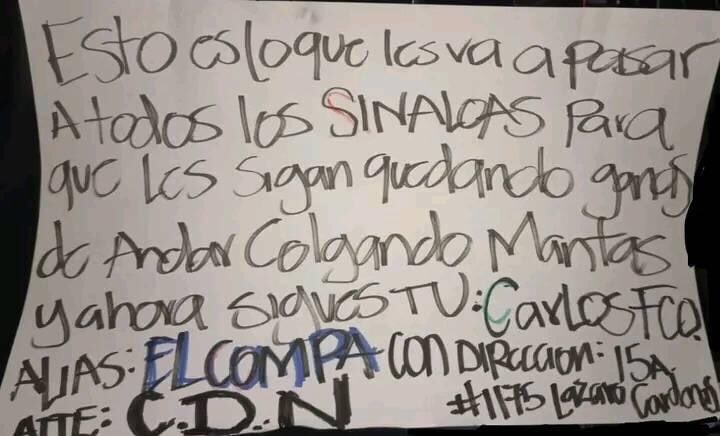 Esto es lo que les va a pasar
A todos los SINALOAS Para
que les sigan quedando ganas
de Andar Colgando Mantas
y ahora sigues TU: Carlos Fco.
ALIAS: EL COMPA CON DIRECCION: 15A.
#1175 Lazaro Cardenas
ATTE: C.D.N